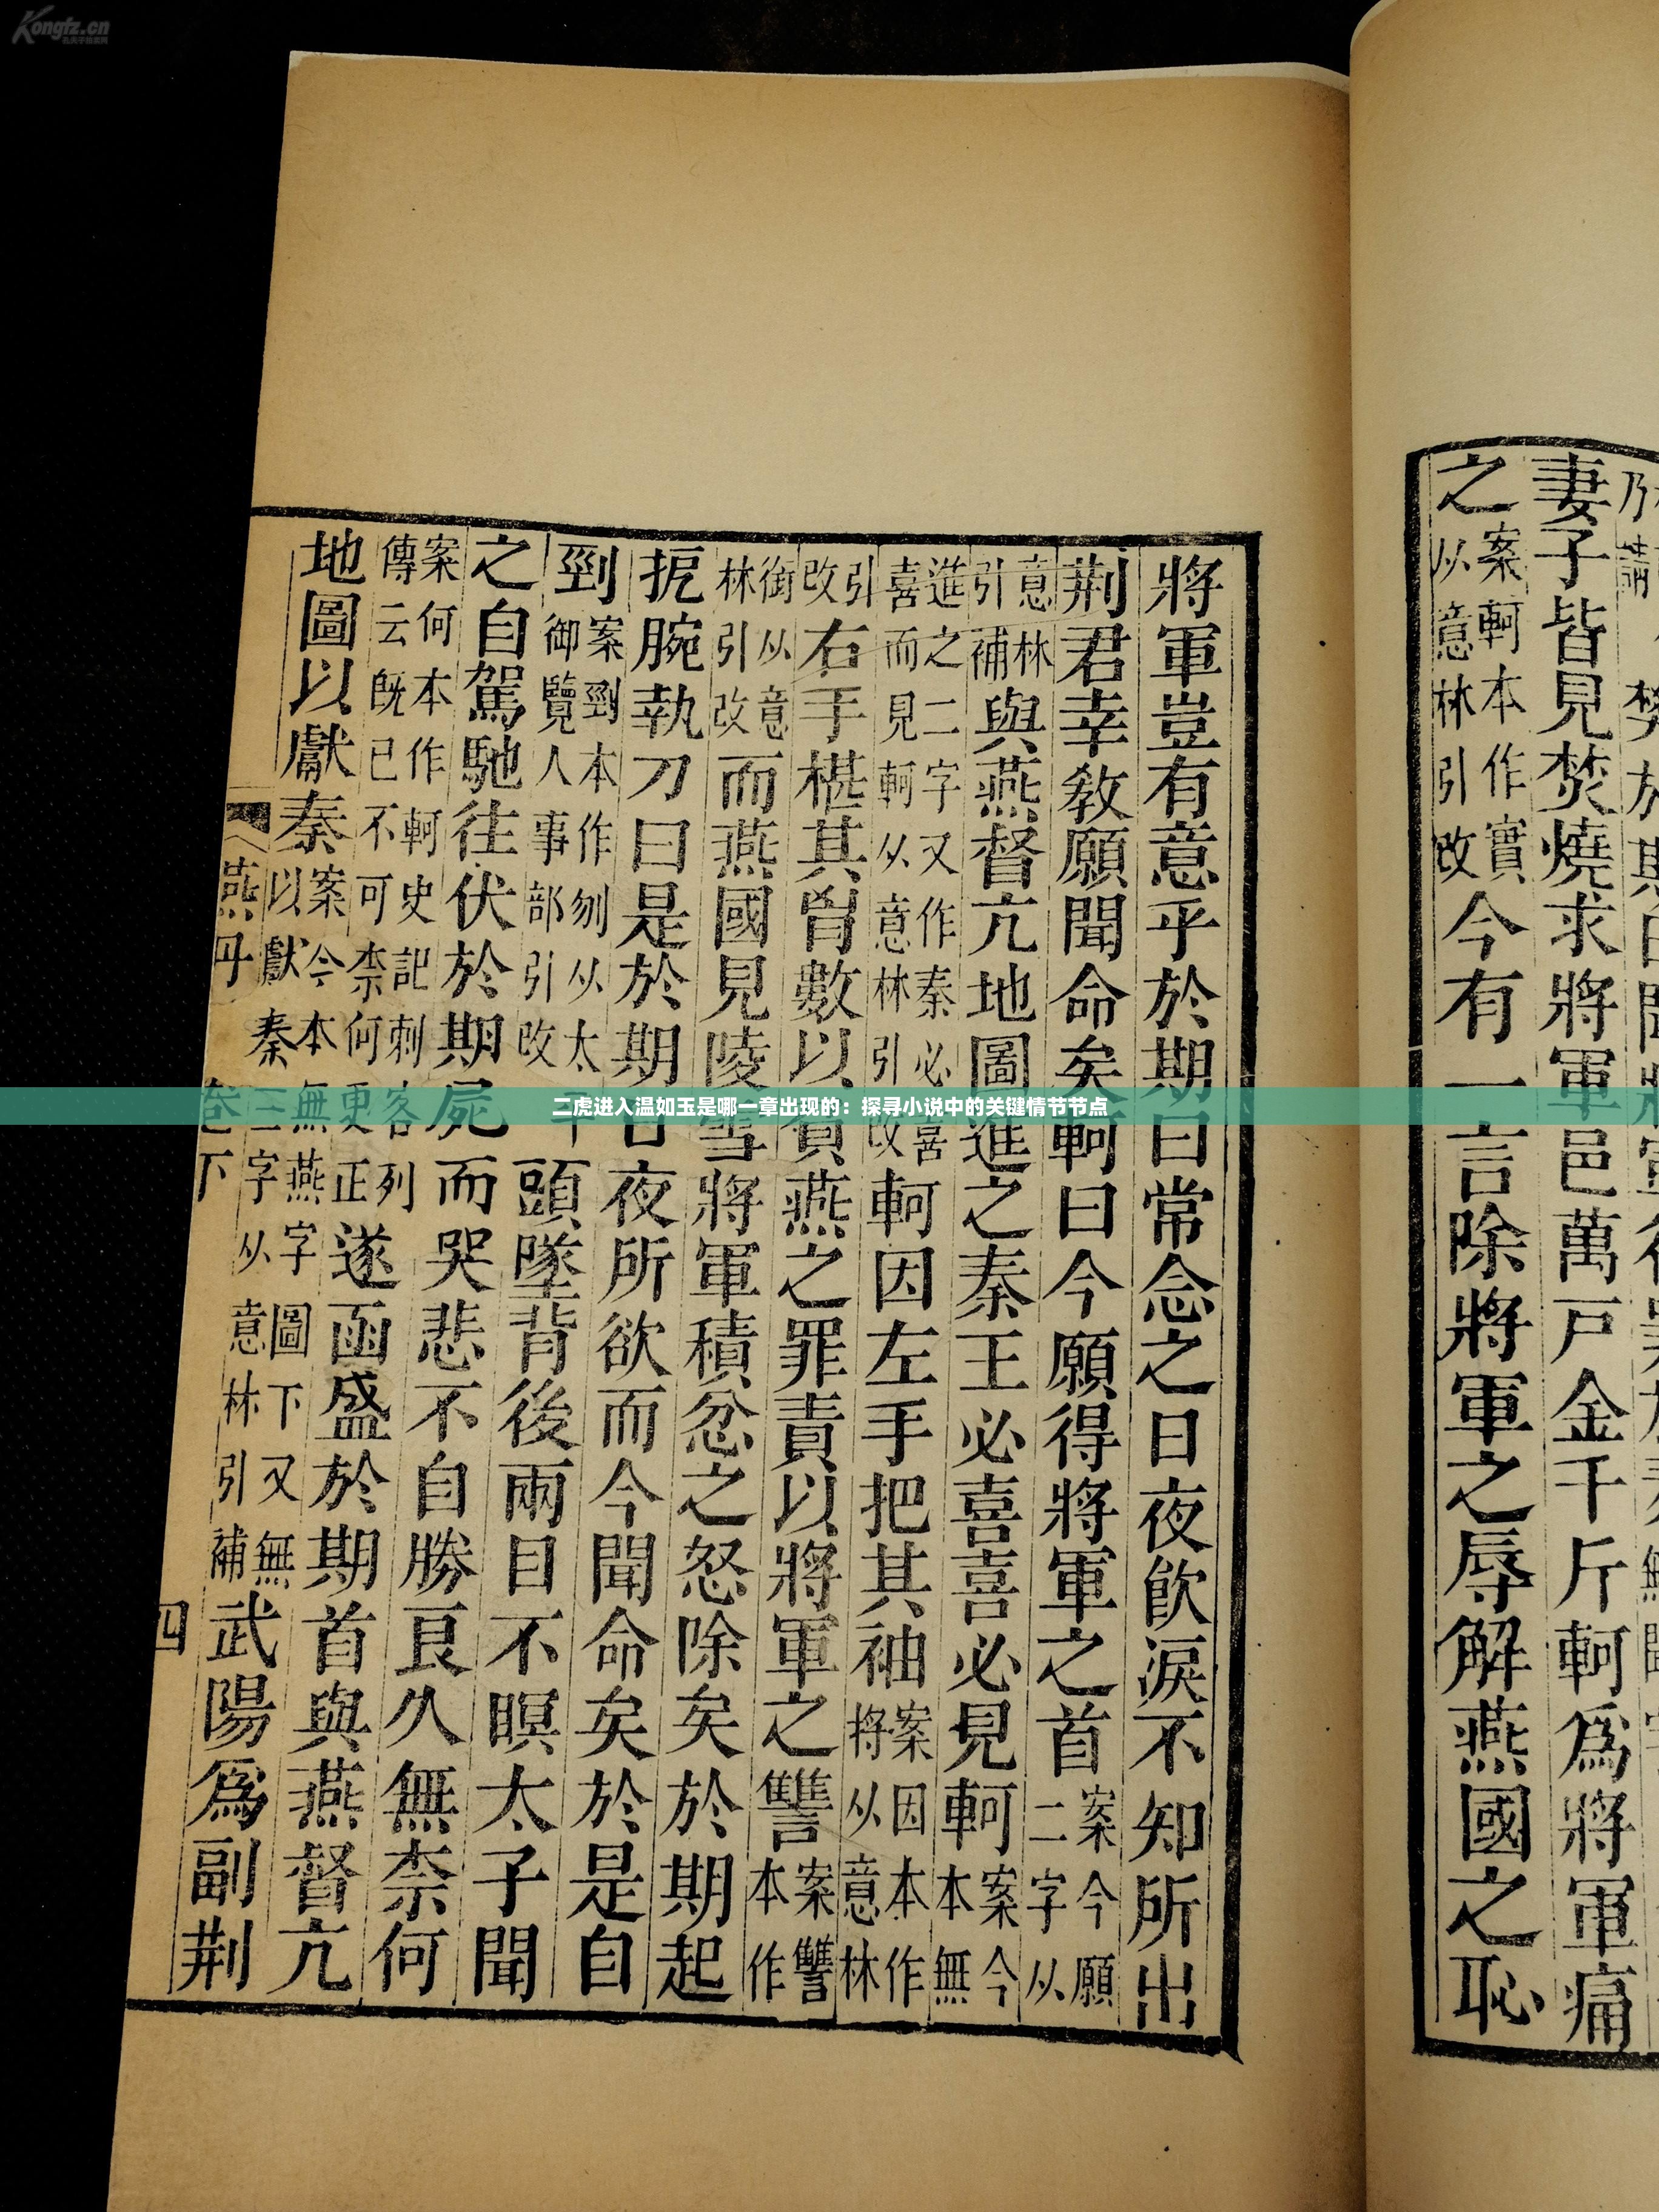 Kongfz.cn
孔夫子旧书网
妻子皆見焚燒求將軍邑萬戶金千斤軻爲將軍痛
之案軻本作實以意林引改今有一言除將軍之辱解燕國之恥
將軍豈有意乎於期曰常念之日夜飮淚不知所出
荆君幸敎願聞命矣軻曰今願得將軍之首案今願二字从
意林引補與燕督亢地圖進之秦王必喜喜必見軻案今本無
進之二字又作秦必喜喜而見軻从意林引改軻因左手把其袖案因本作將从意林
引改右手椹其胷數以負燕之罪責以將軍之讐案讐本作
衘从意林引改而燕國見陵雪將軍積忿之怒除矣於期起
扼腕執刀曰是於期日夜所欲而今聞命矣於是自
剄案剄本作刎从太平御覽人事部引改頭墜背後兩目不瞑太子聞
之自駕馳往伏於期屍而哭悲不自勝良久無柰何
案何本作軻史記刺客列傳云旣已不可柰何更正遂函盛於期首與燕督亢
地圖以獻秦案今本無燕字圖下又無以獻秦三字从意林引補武陽爲副荆
燕丹 卷下 四
二虎进入温如玉是哪一章出现的：探寻小说中的关键情节节点